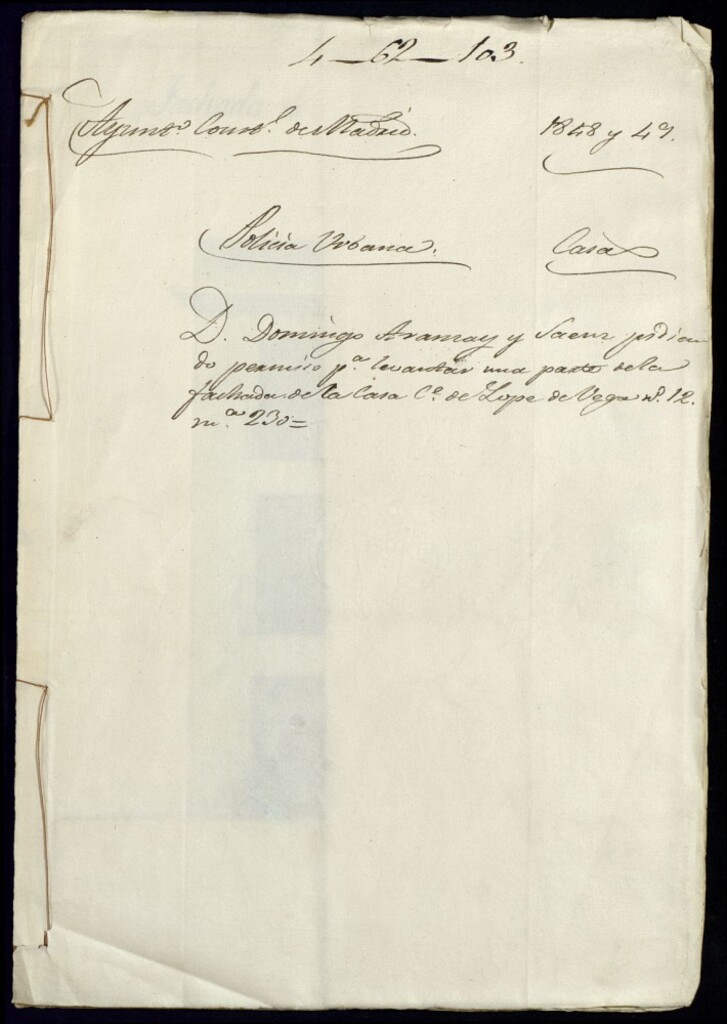 4-62-103.
Ayunt.º Const.l de Madrid. 1848 y 49.
Policia Urbana. Casa
D. Domingo Aramay y Saenz pidien
do permiso p.a levantar una parte de la
fachada de la Casa C.e de Lope de Vega n.º 12.
m.a 230=
Fachada